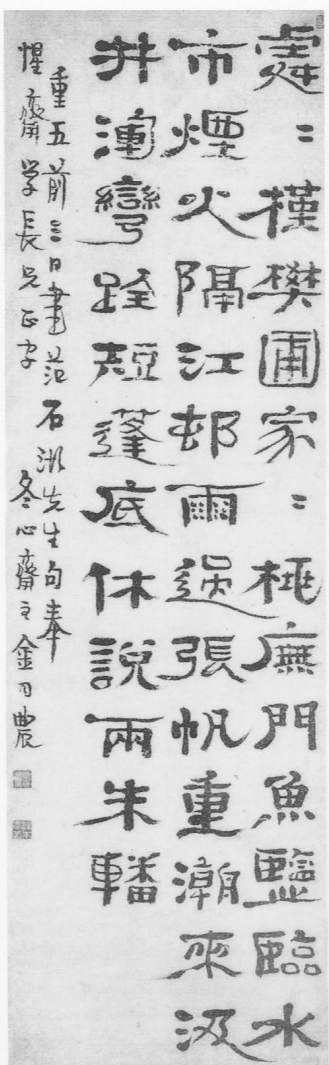 處〻槿樊圃家〻桃廡門魚鹽臨水
市煙火隔江邨雨過張帆重潮來汲
井渾彎跧短蓬底休說兩朱轓
重五前三日書范石湖先生句奉
惺齋學長兄正字 冬心齋主金司農